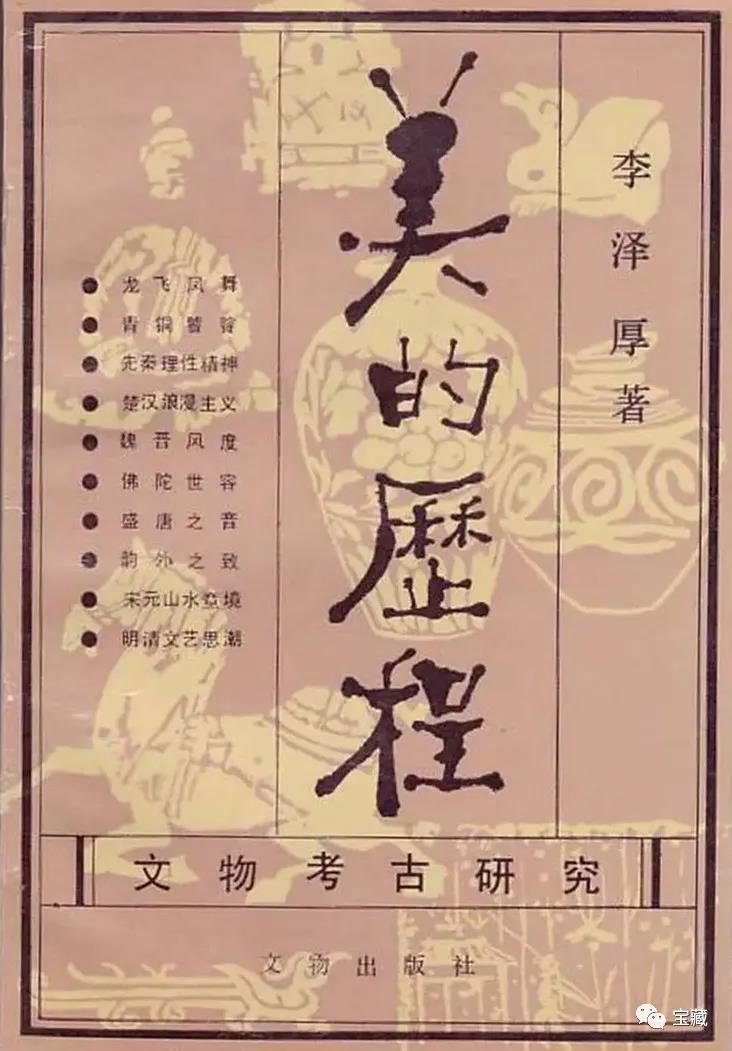 美的歷程
李泽厚著
龙飞凤舞
青铜饕餮
先秦理性精神
楚汉浪漫主义
魏晋风度
佛陀世容
盛唐之音
韵外之致
宋元山水意境
明清文艺思潮
文物考古研究
文物出版社
宝藏